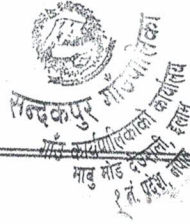 सन्दकपुर गाउँपालिका
गाउँ कार्यपालिकाको कार्यालय
माबु मोड देउराली, इलाम
१ नं. प्रदेश, नेपाल